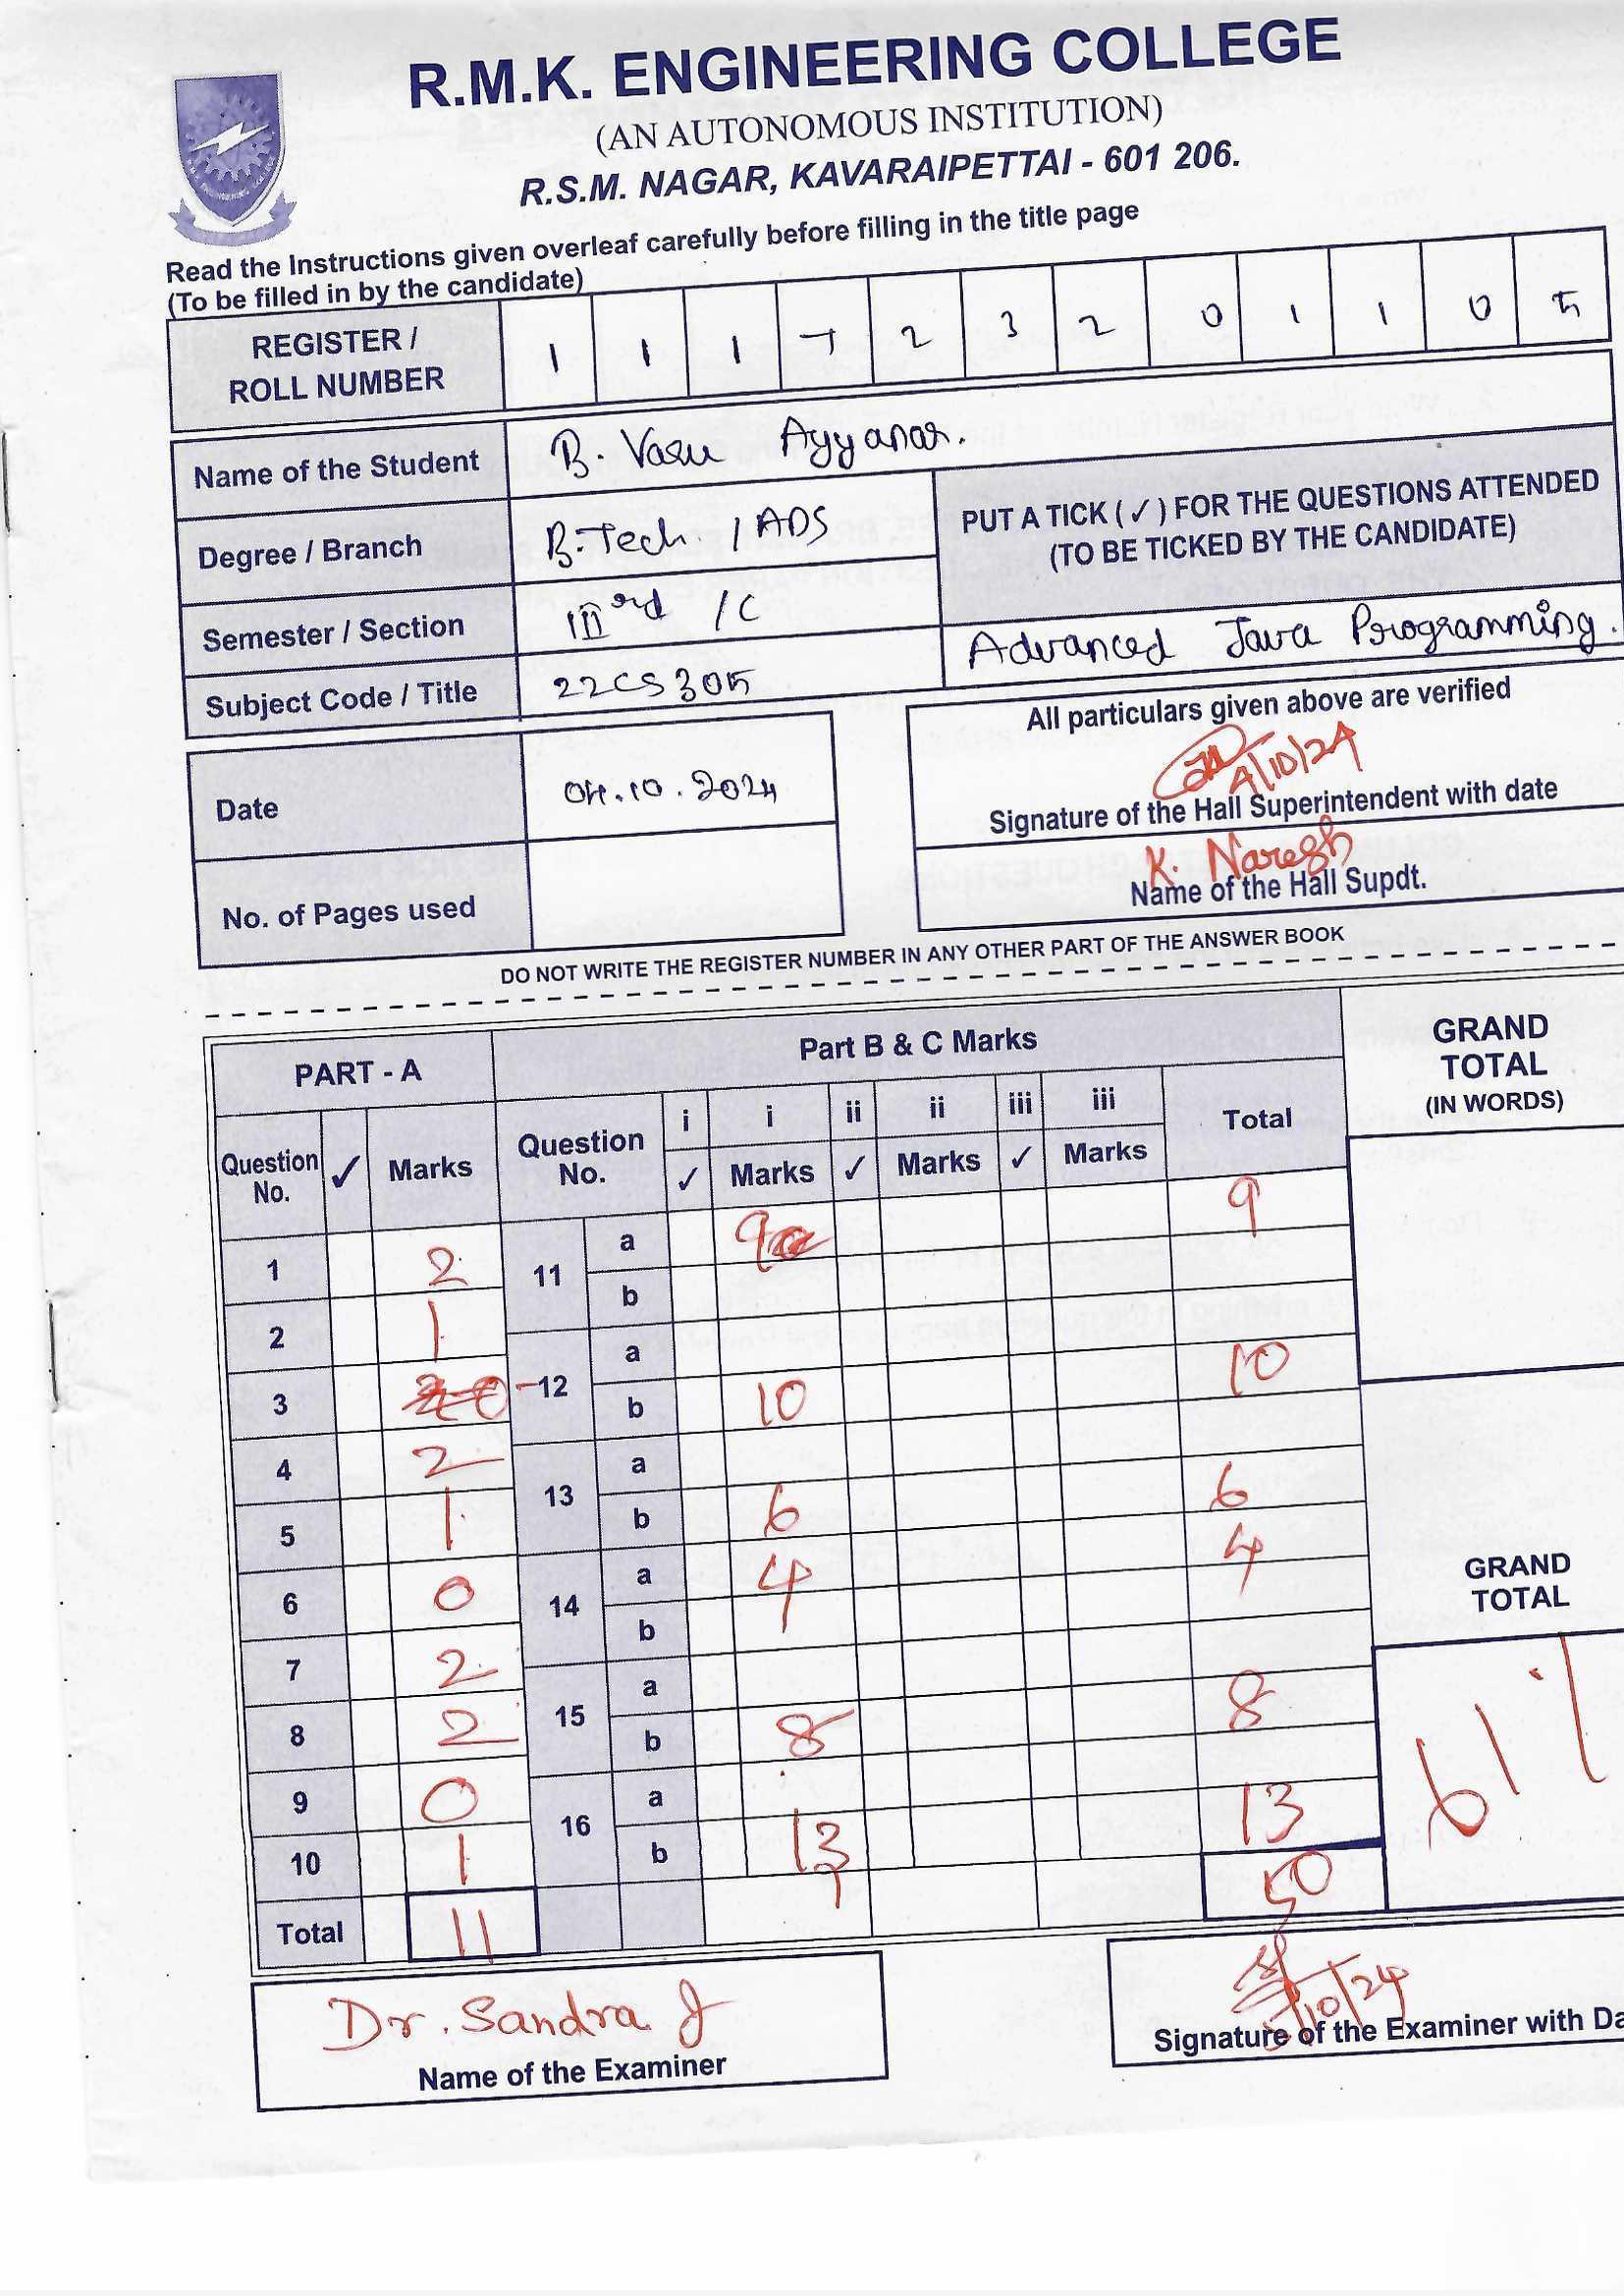 R.M.K. ENGINEERING COLLEGE
(AN AUTONOMOUS INSTITUTION)
R.S.M. NAGAR, KAVARAIPETTAI - 601 206.
Read the Instructions given overleaf carefully before filling in the title page
(To be filled in by the candidate)
REGISTER / ROLL NUMBER 1 1 1 7 2 3 2 0 1 1 0 5
Name of the Student B. Vasu Ayyanar.
Degree / Branch B.Tech. / ADS
PUT A TICK ( ✓ ) FOR THE QUESTIONS ATTENDED
(TO BE TICKED BY THE CANDIDATE)
Semester / Section III rd / C
Subject Code / Title 22CS305 Advanced Java Programming.
All particulars given above are verified
4/10/24
Date 04.10.2024
Signature of the Hall Superintendent with date
K. Naresh
No. of Pages used
Name of the Hall Supdt.
DO NOT WRITE THE REGISTER NUMBER IN ANY OTHER PART OF THE ANSWER BOOK
PART - A Part B & C Marks GRAND TOTAL (IN WORDS)
Question No. ✓ Marks Question No. i ✓ i Marks ii ✓ ii Marks iii ✓ iii Marks Total
1 2 11 a 9 9
2 1 b
3 0 12 a
b 10 10
4 2 13 a
5 1 b 6 6
6 0 14 a 4 4
7 2 b
8 2 15 a
b 8 8
9 0 16 a
10 1 b 13 13
Total 11 50
GRAND TOTAL
61
Dr. Sandra J
Name of the Examiner
Signature of the Examiner with Da